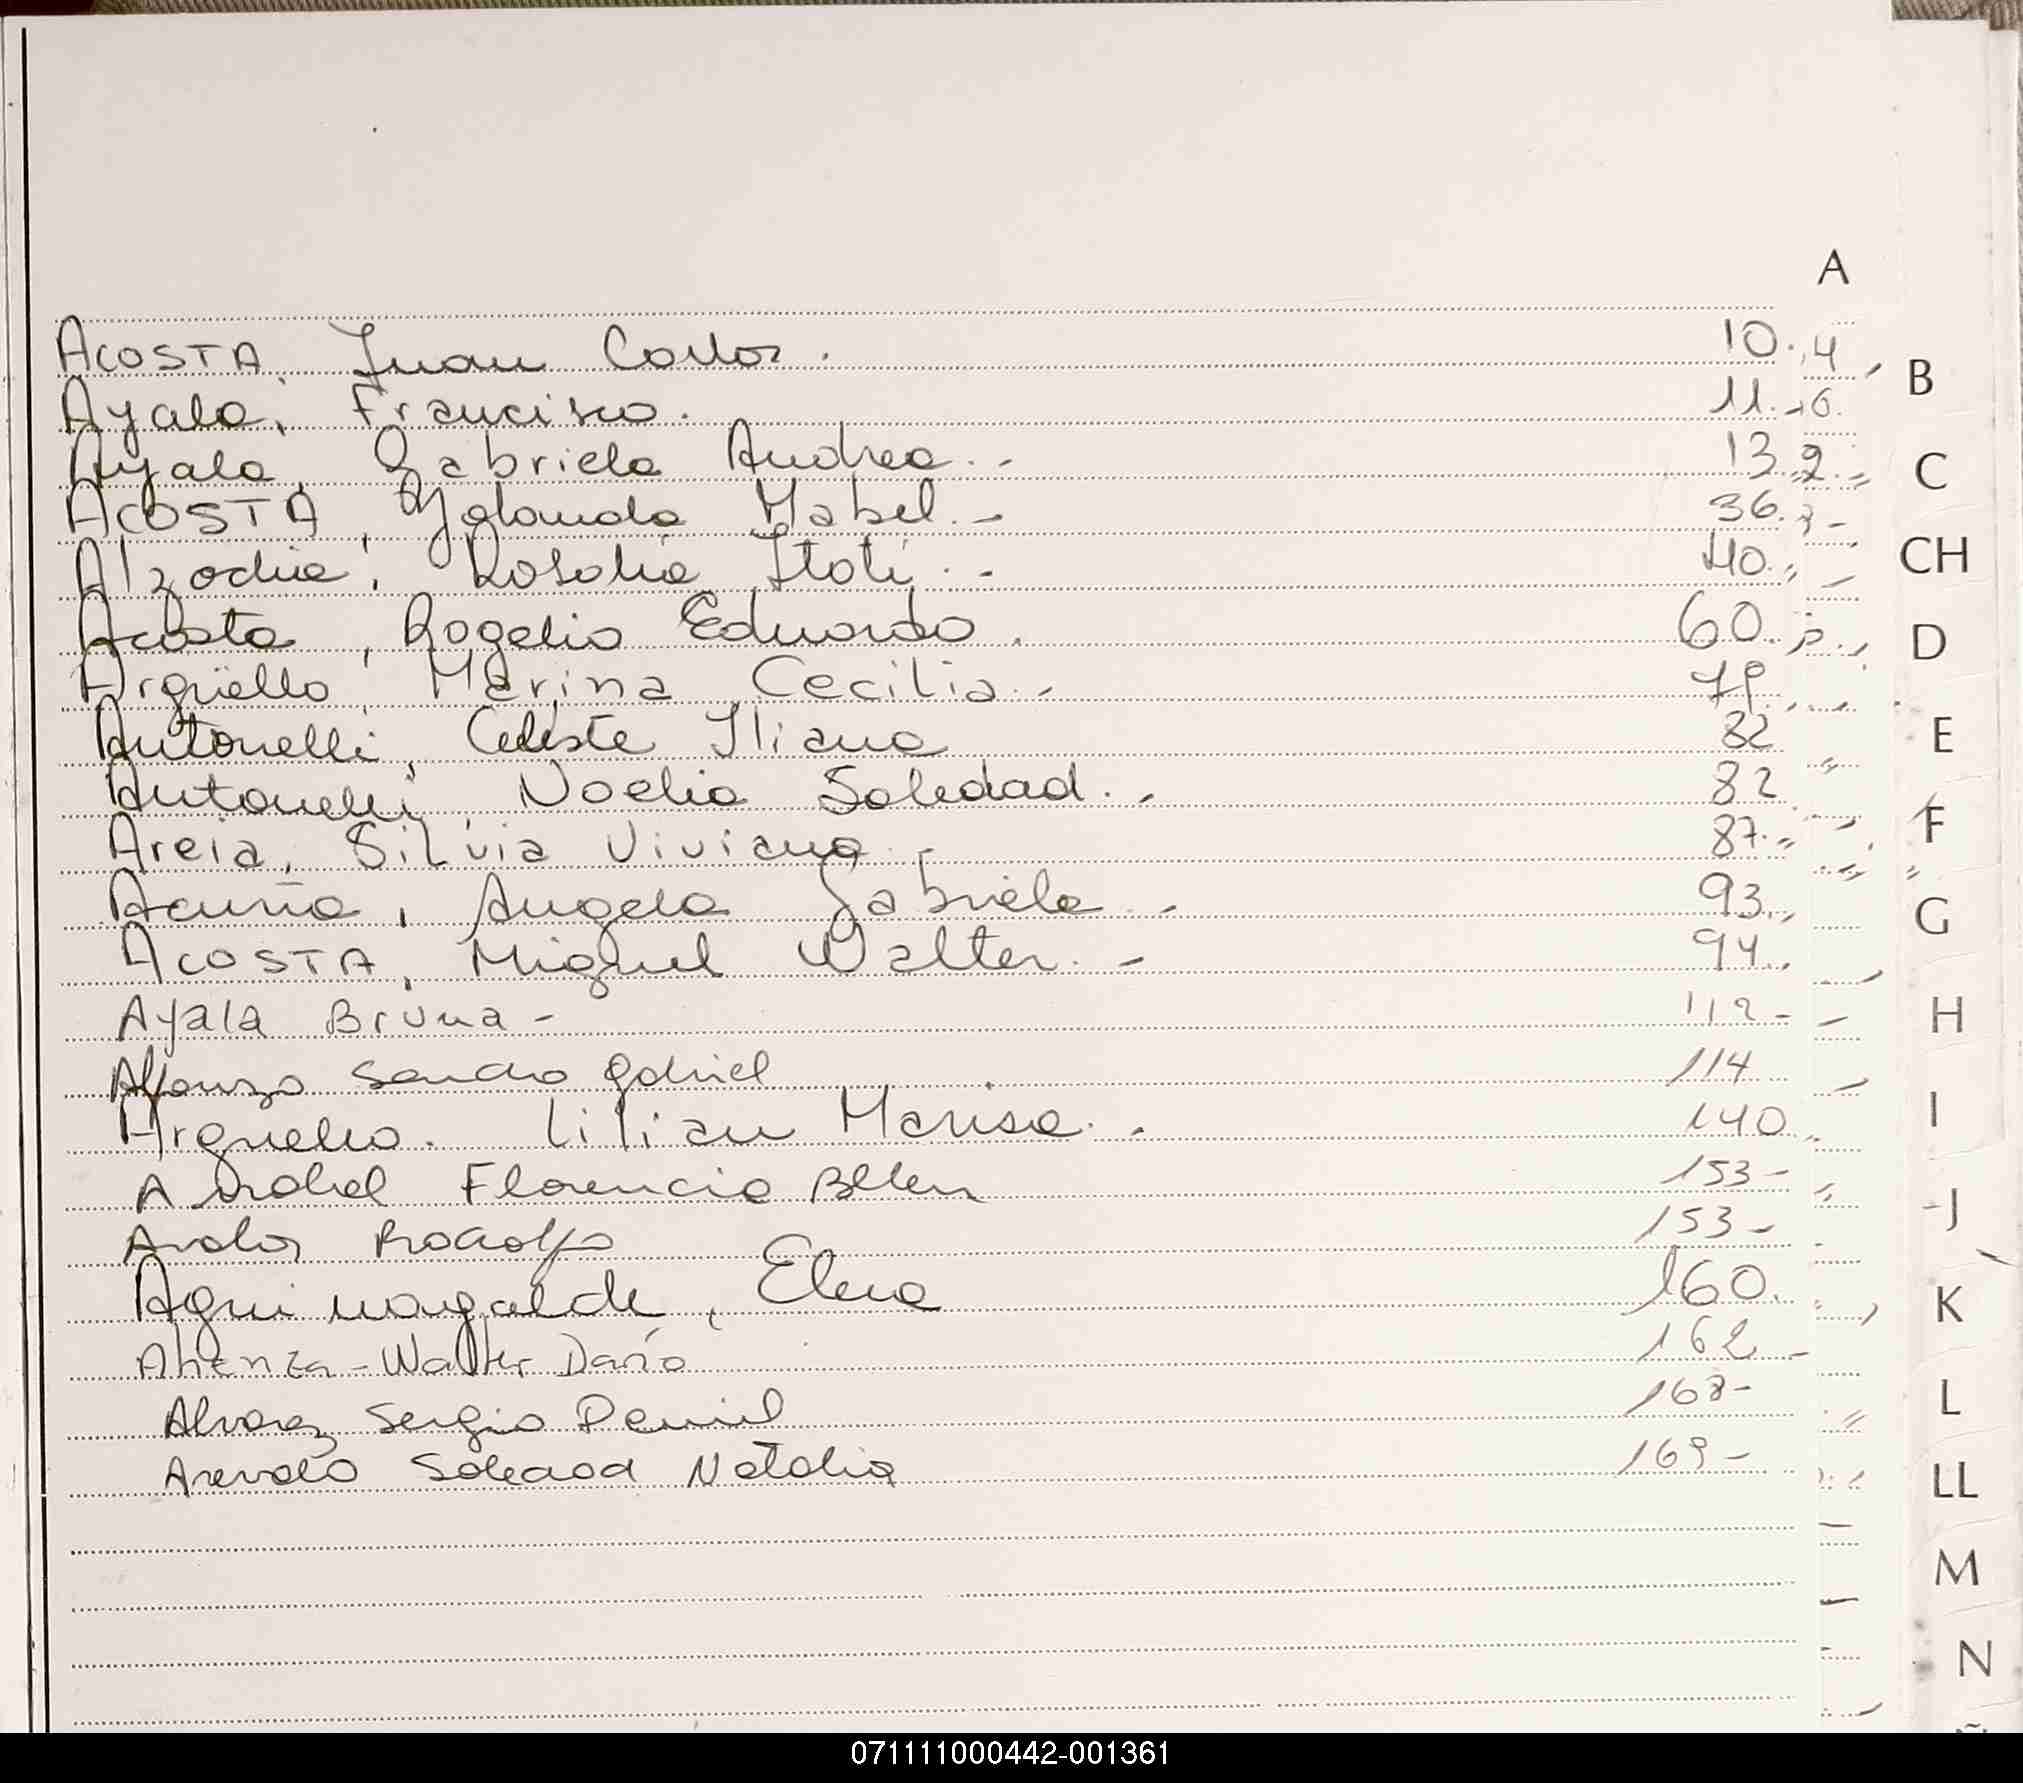 A
ACOSTA, Juan Carlos. 10.
Ayala, Francisco. 11.
Ayala, Gabriela Andrea.- 13
ACOSTA, Yolanda Mabel.- 36.
Rosalía Itatí.- 40.
Acosta, Rogelio Eduardo. 60.
Argüello, Marina Cecilia.- 79
Antonelli, Celeste Iliana 82
Antonelli, Noelia Soledad.- 82
Areia, Silvia Viviana.- 87.
Acuña, Angela Gabriela.- 93.
ACOSTA, Miguel Walter.- 94.
Ayala Bruna - 112-
Alfonzo Sandro Gabriel 114
Arguello. Lilian Marisa.- 140
Florencia Belen 153-
Avalos Rodolfo 153-
Aguinagalde, Elena 160.
Atienza - Walter Darío 162-
Alvarez Sergio Daniel 168-
Arevalo Soledad Natalia 169-
B
C
CH
D
E
F
G
H
I
J
K
L
LL
M
N
071111000442-001361